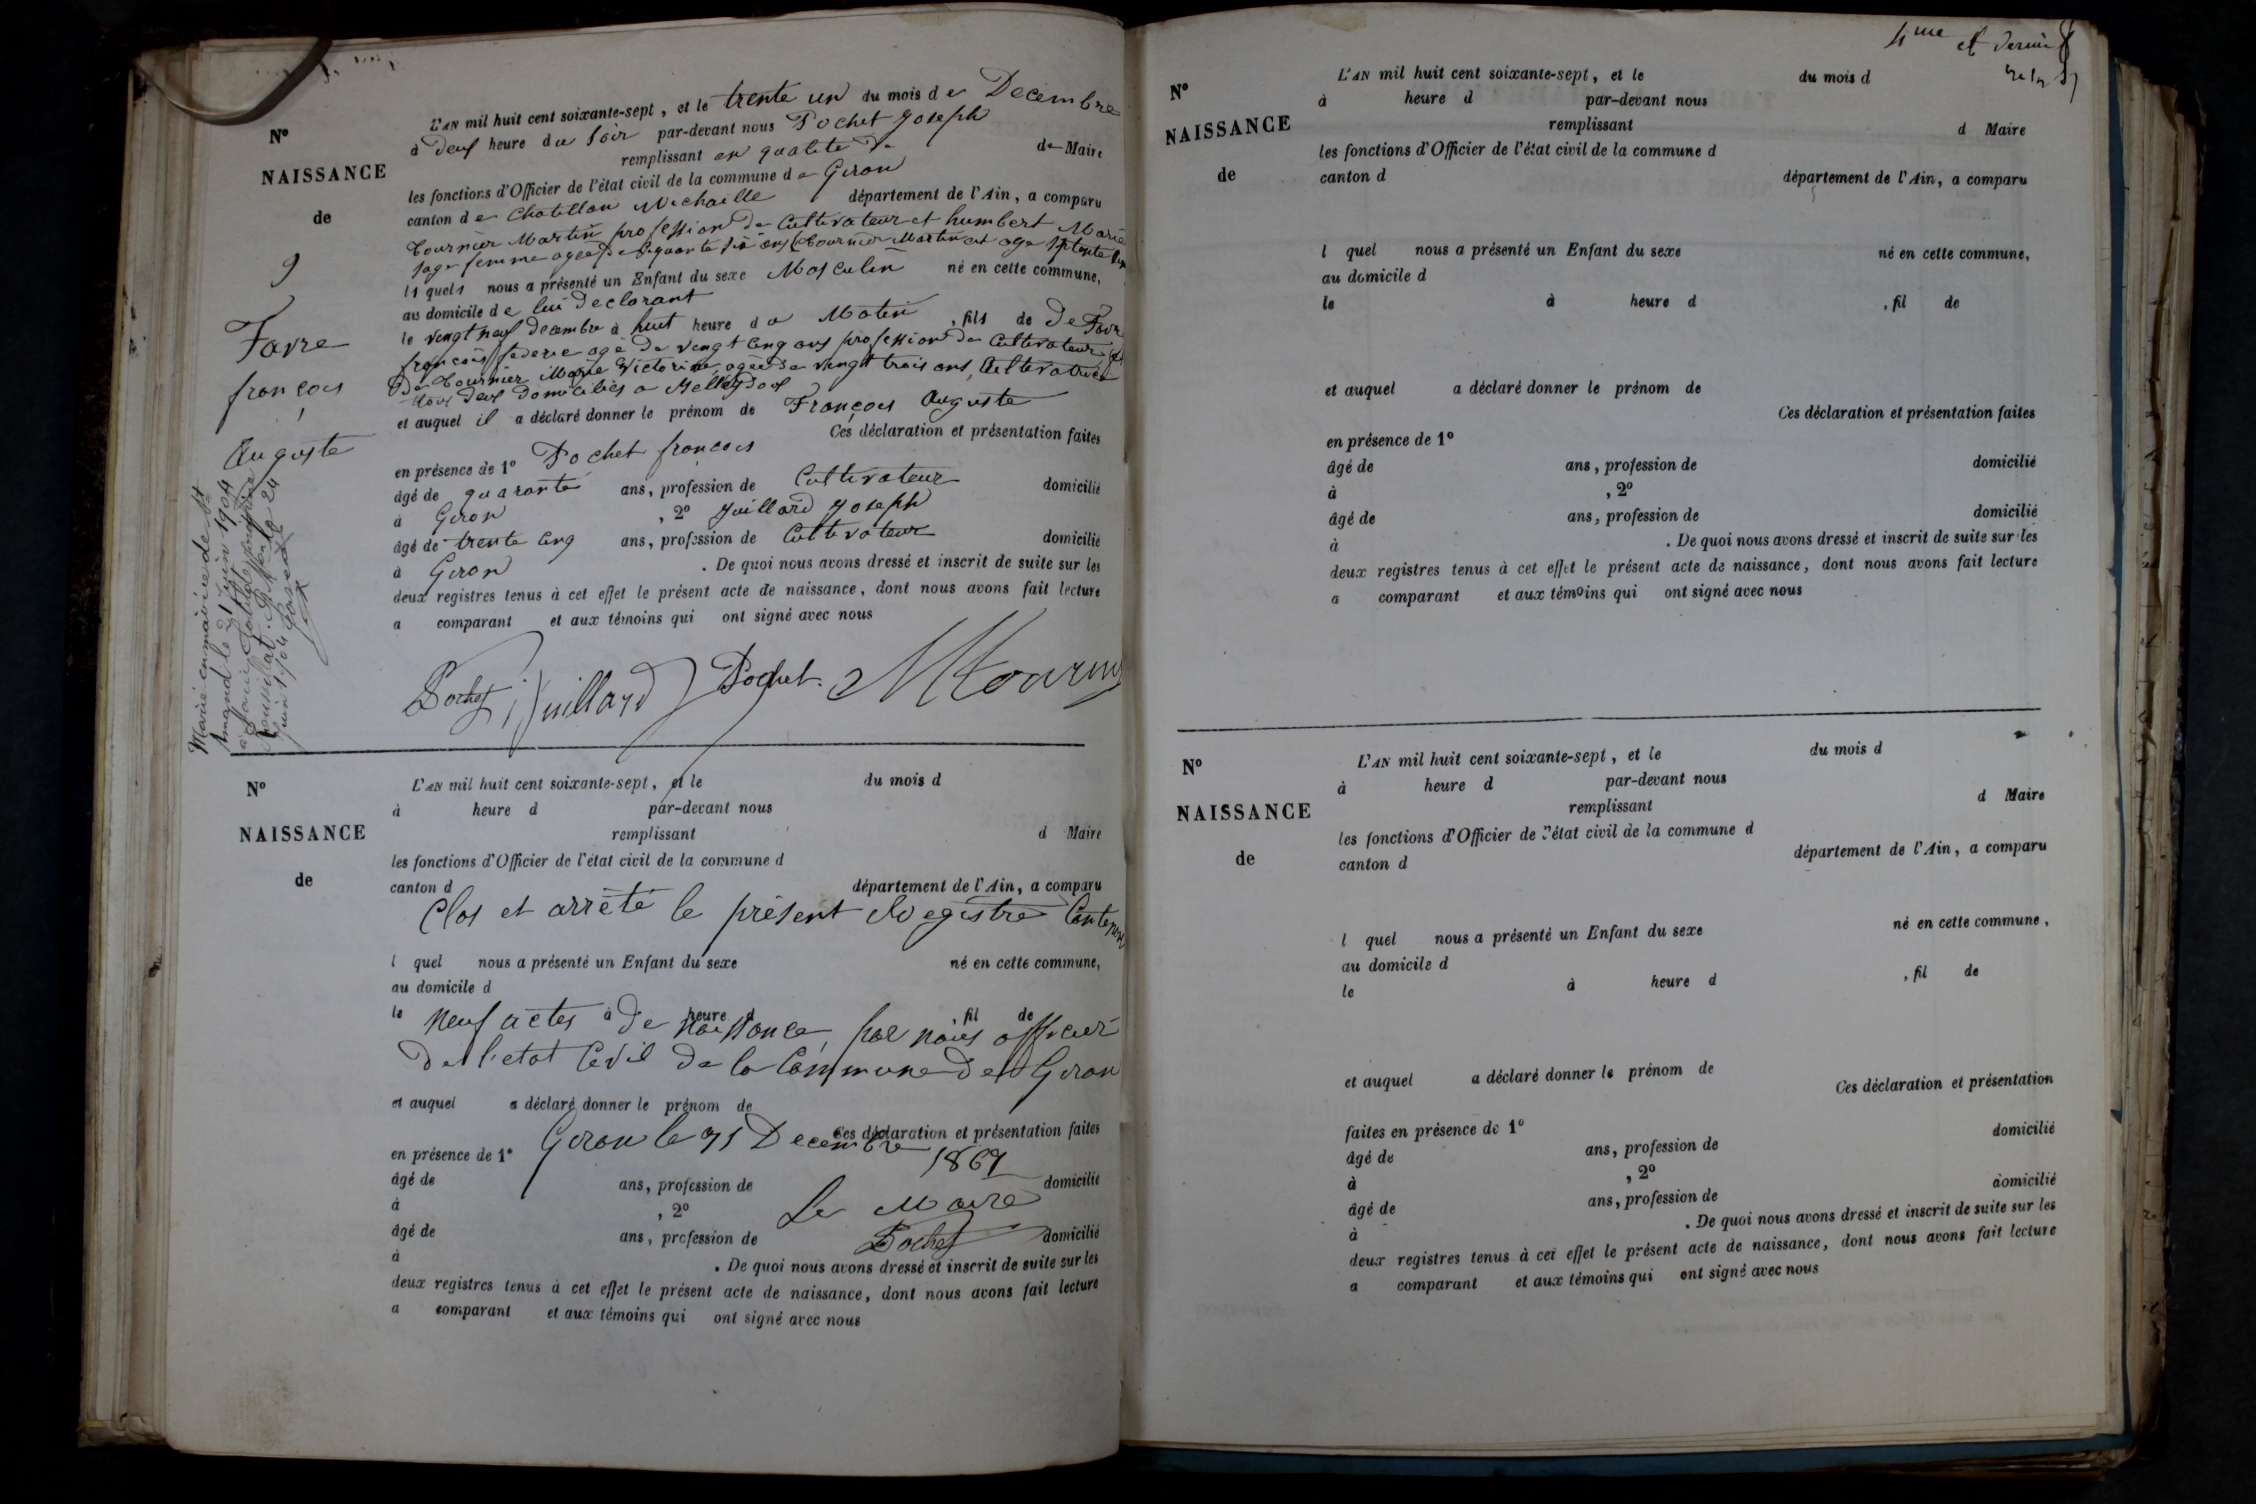 N°
NAISSANCE
de
9
Favre
françois
Auguste
Marié en mairie de St
Amand le 21 juin 1904
juin 1904
L'AN mil huit cent soixante-sept, et le trente un du mois de Decembre
à deux heure du soir par-devant nous Pochet Joseph
remplissant en qualité de de Maire
les fonctions d'Officier de l'état civil de la commune de Giron
canton de Chatillon Michaille département de l'Ain, a comparu
Tournier Martin profession de Cultivateur et humbert Marie
sage femme agée de Ciquante six ans Tournier Martin et age septente
ls quels nous a présenté un Enfant du sexe Masculin né en cette commune,
au domicile de lui declarant
le vengt neuf decembre à huit heure du Matin, fils de De Favre
françois federic agé de vengt cinq ans profession de Cultivateur et
De Tournier Marie Victorine agée de vingt trois ans Cultivatrice
tous deux domicilies a Belleydoux
et auquel il a déclaré donner le prénom de François Auguste
Ces déclaration et présentation faites
en présence de 1° Pochet francois
âgé de quarante ans, profession de Cultivateur domicilié
à Giron, 2° Juillard Joseph
âgé de trente cinq ans, profession de Cultivateur domicilié
à Giron. De quoi nous avons dressé et inscrit de suite sur les
deux registres tenus à cet effet le présent acte de naissance, dont nous avons fait lecture
a comparant et aux témoins qui ont signé avec nous
Pochet Juillard Pochet M tournier
N°
NAISSANCE
de
L'AN mil huit cent soixante-sept, et le du mois d
à heure d par-devant nous
remplissant d Maire
les fonctions d'Officier de l'état civil de la commune d
canton d département de l'Ain, a comparu
Clos et arrêté le présent Registre Contenant
l quel nous a présenté un Enfant du sexe né en cette commune,
au domicile d
le à heure d, fil de
Neuf actes de Naissance, par nous officier
De l'etat Civil de la Commune de Giron
et auquel a déclaré donner le prénom de
Giron le 31 Decembre 1867
Ces déclaration et présentation faites
en présence de 1°
âgé de ans, profession de domicilié
à, 2°
Le Maire
Pochet
âgé de ans, profession de domicilié
à. De quoi nous avons dressé et inscrit de suite sur les
deux registres tenus à cet effet le présent acte de naissance, dont nous avons fait lecture
a comparant et aux témoins qui ont signé avec nous
4me et dernier
N°
NAISSANCE
de
L'AN mil huit cent soixante-sept, et le du mois d
à heure d par-devant nous
remplissant d Maire
les fonctions d'Officier de l'état civil de la commune d
canton d département de l'Ain, a comparu
l quel nous a présenté un Enfant du sexe né en cette commune,
au domicile d
le à heure d, fil de
et auquel a déclaré donner le prénom de
Ces déclaration et présentation faites
en présence de 1°
âgé de ans, profession de domicilié
à, 2°
âgé de ans, profession de domicilié
à. De quoi nous avons dressé et inscrit de suite sur les
deux registres tenus à cet effet le présent acte de naissance, dont nous avons fait lecture
a comparant et aux témoins qui ont signé avec nous
N°
NAISSANCE
de
L'AN mil huit cent soixante-sept, et le du mois d
à heure d par-devant nous
remplissant d Maire
les fonctions d'Officier de l'état civil de la commune d
canton d département de l'Ain, a comparu
l quel nous a présenté un Enfant du sexe né en cette commune,
au domicile d
le à heure d, fil de
et auquel a déclaré donner le prénom de
Ces déclaration et présentation
faites en présence de 1° domicilié
âgé de ans, profession de
à, 2° domicilié
âgé de ans, profession de
à. De quoi nous avons dressé et inscrit de suite sur les
deux registres tenus à cet effet le présent acte de naissance, dont nous avons fait lecture
a comparant et aux témoins qui ont signé avec nous